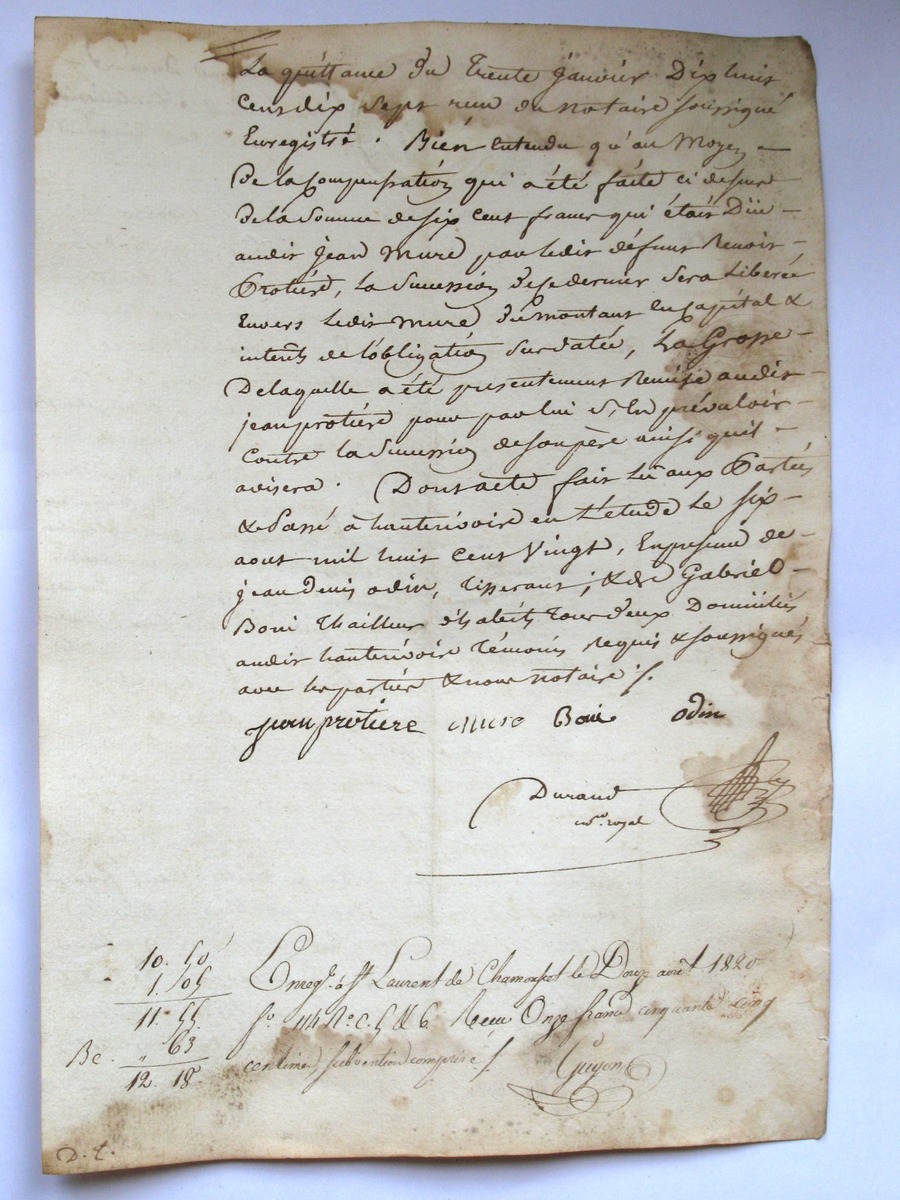 La quittance du trente janvier Dix huit
Cent dix sept reçue du notaire soussigné
Enregistré. Bién entendu qu'au Moyen
De la Compensation qui a été faite ci dessus
de la Somme de six cent francs qui était Düe
audit jean Mure par ledit défunt Benoit
Protière, la Succession de ce dernier Sera Libérée
Envers ledit Mure du montant en Capital &
intérêts de l'obligation Susdatée, La Grosse
De laquelle a été présentement Remise audit
jean protière pour par lui s'en prévaloir
Contre la Succession de son père ainsi qu'il
avisera. Dont acte fait Lû aux Parties
& Passé à hauterivoire en L'étude Le six
aout mil huit Cent Vingt, En présence de
jean Denis odin, Tisserant; & de Gabriel
Boni thailleur d'habits tous deux Domiciliés
audit hauterivoire Témoins Requis & soussignés
avec les parties & nous notaire
jean protiere mure Boni odin
Durand
no.re royal
10. 50
1. 05
11. 55
Be. " 63
12. 18
Enreg. à St Laurent de Chamousset le Douze août 1820
fo. 114 Ro. c. 5 & 6. Recu Onze francs cinquante cinq
centimes, subvention comprise
Guyon
D. t.